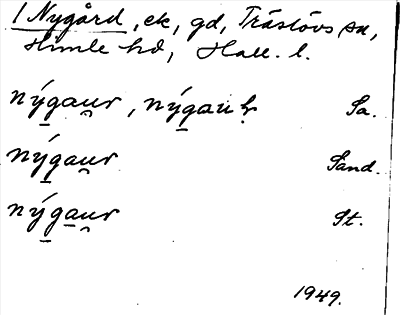 1 Nygård, ek, gd, Träslövs sn,
Himle hd, Hall. l.
ný̱gau̯r, ný̱gau̯r̥ Sa.
ný̱gau̯r Sand.
ný̱ga̱u̯r St.
1949.